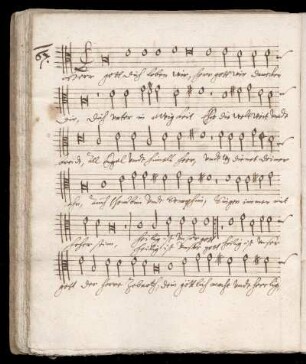 Herr gott dich loben wir, herr gott wir dancken
dir, dich vater in ewigkeit Ehr die welt weit und
breit, all Engel und himels heer, und was dienet deiner
ehr, auch Cherubin und Seraphin, singen immer mit
hoher stim, heilig ist unser gott
heilig ist unser gott heilig ist unser
gott der herre Zebaoth, dein göttlich macht und herrlig